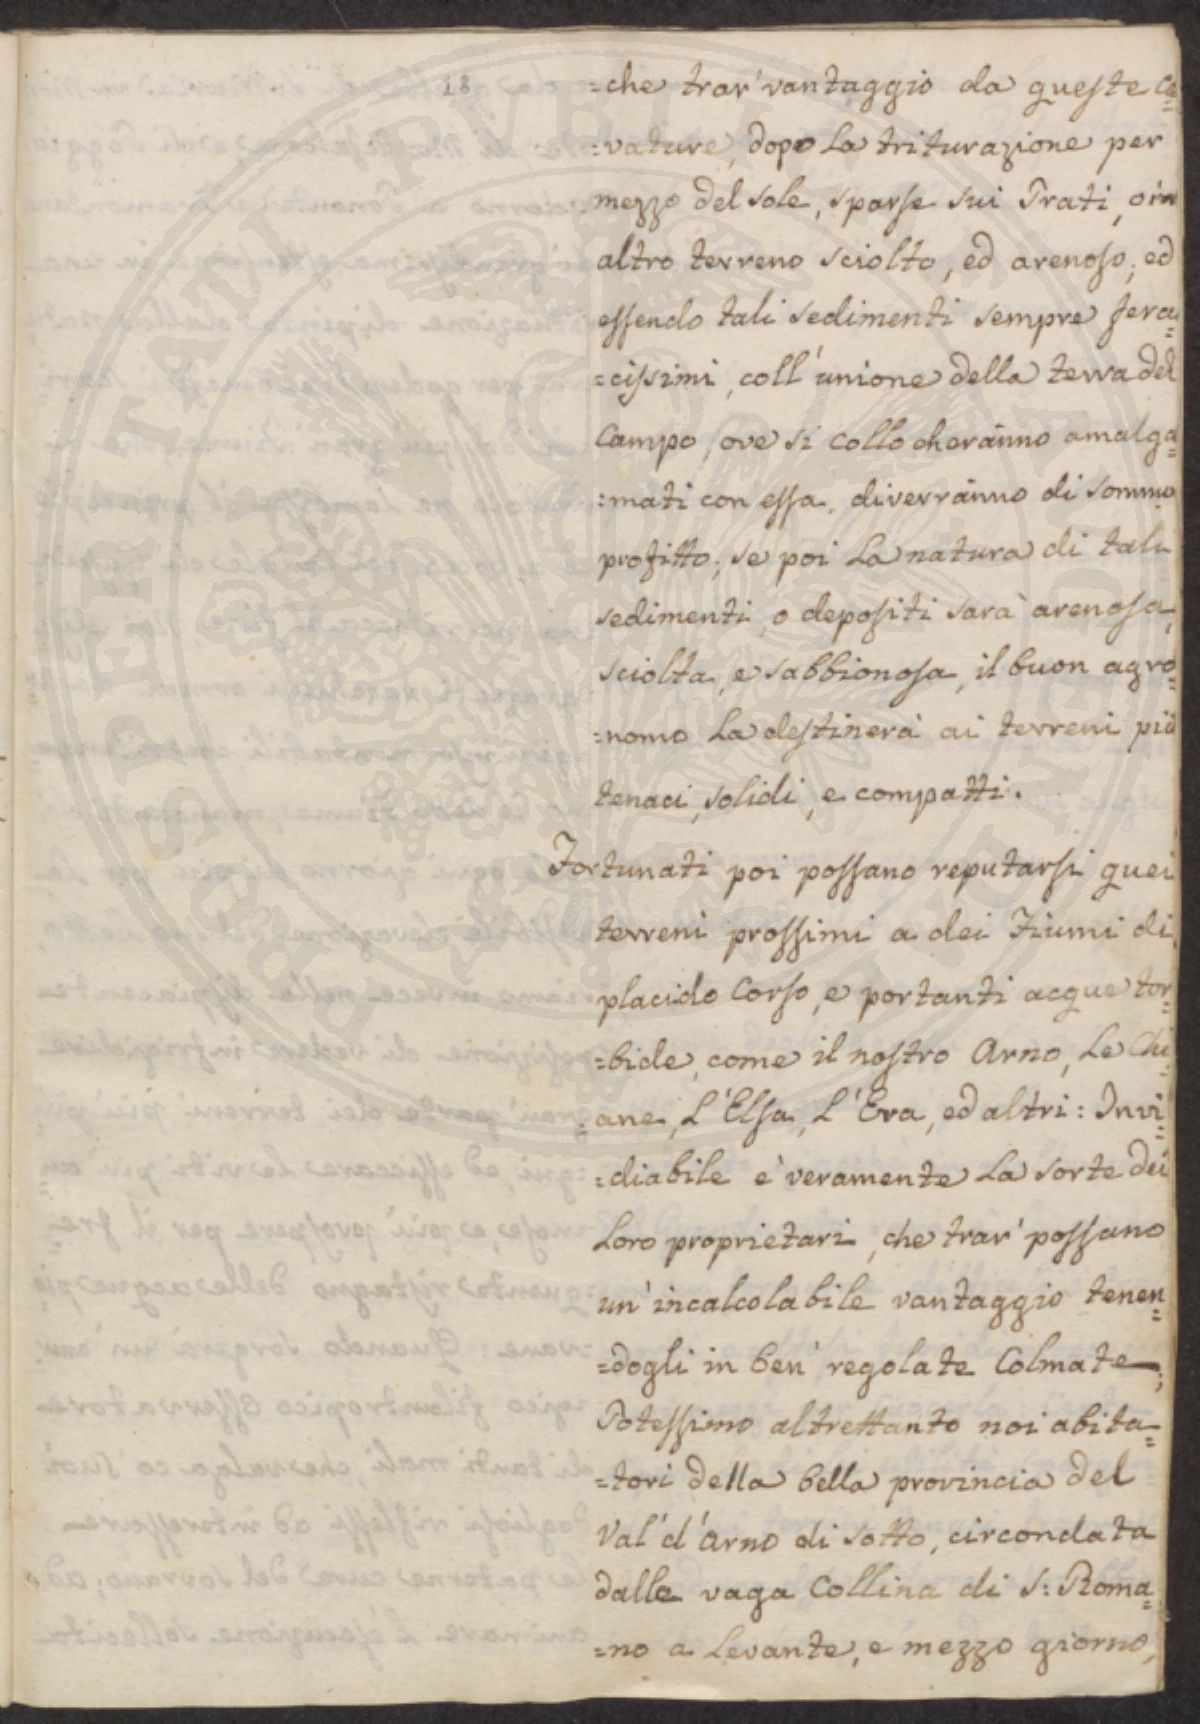 18
=che trar' vantaggio da queste ca=
=vature, dopo la triturazione per
mezzo del sole, sparse sui Prati, o in
altro terreno sciolto, ed arenoso; ed
essendo tali sedimenti sempre fera=
=cissimi, coll'unione della terra del
Campo, ove si collocheranno amalga=
=mati con essa, diverranno di sommo
profitto; se poi la natura di tali
sedimenti, o depositi sarà arenosa,
sciolta, e sabbionosa, il buon agro=
=nomo la destinerà ai terreni più
tenaci, solidi, e compatti.
Fortunati poi possano reputarsi quei
terreni prossimi a dei Fiumi di
placido Corso, e portanti acque tor=
=bide, come il nostro Arno, le Chi=
=ane, L'Elsa, L'Era, ed altri: Invi=
=diabile è veramente la sorte dei
Loro proprietari, che trar' possano
un'incalcolabile vantaggio tenen=
=dogli in ben' regolate Colmate;
Potessimo altrettanto noi abita=
=tori della bella provincia del
Val'd'Arno di sotto, circondata
dalla vaga Collina di S: Roma=
=no a Levante, e mezzo giorno,
PROSPERITATI PVBLICAE